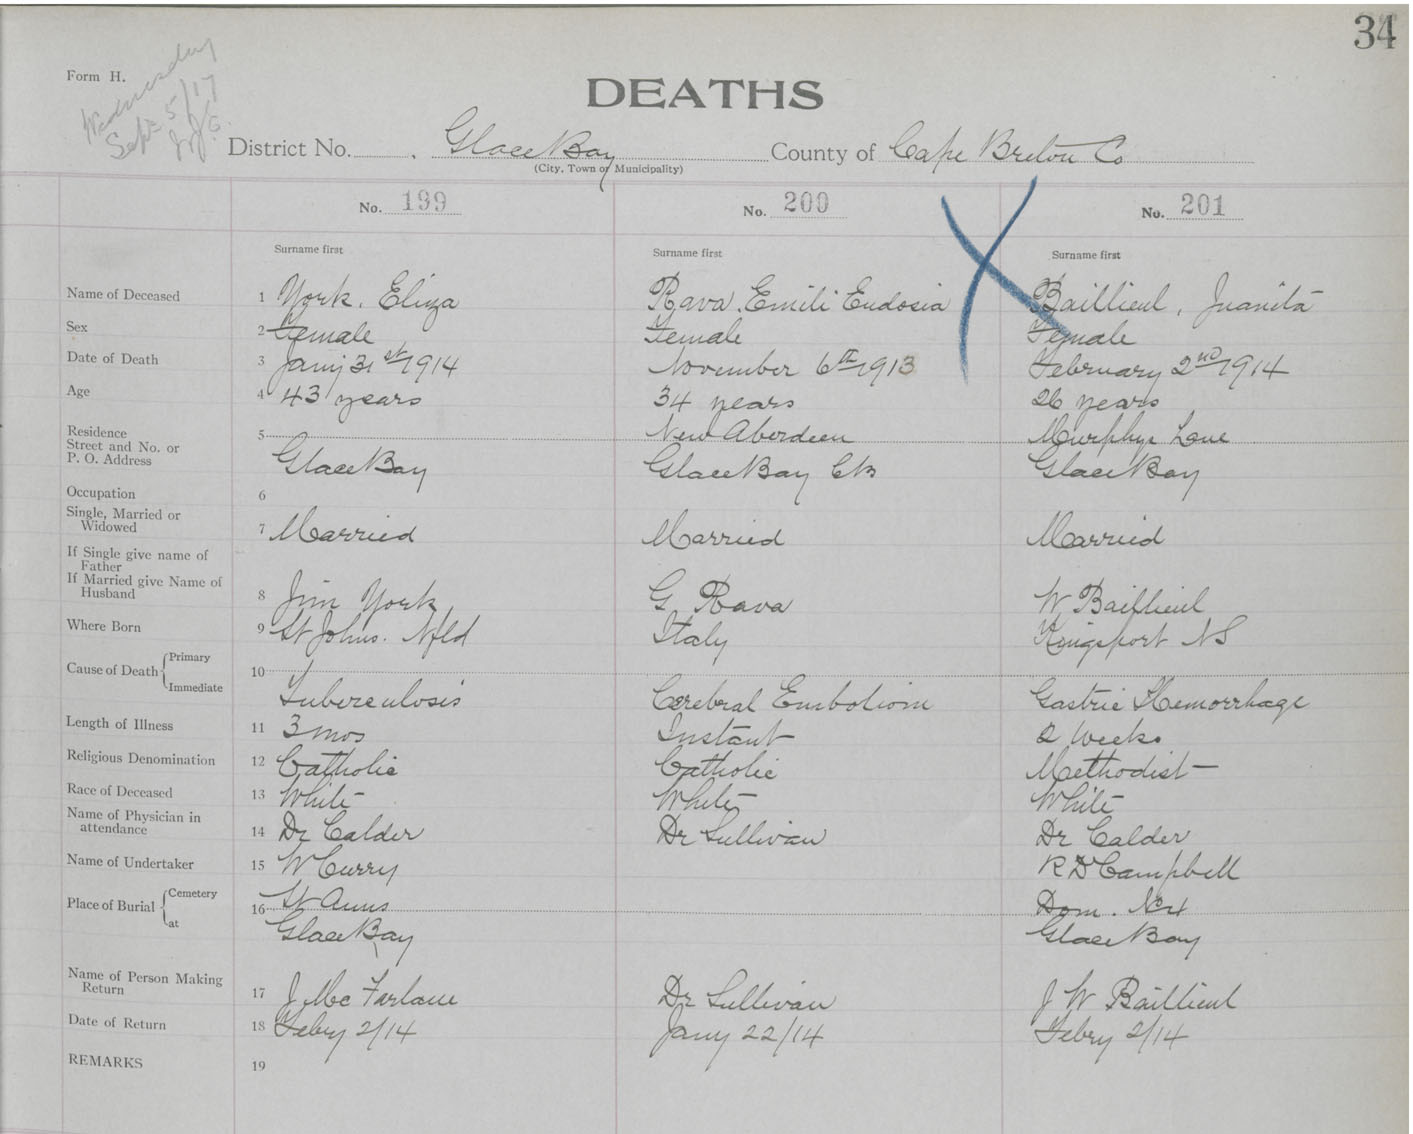 34
Form H.
Wednesday
Sept 5/17
DEATHS
District No. . Glace Bay County of Cape Breton Co
(City, Town or Municipality)
No. 199 No. 200 No. 201
Surname first Surname first Surname first
Name of Deceased 1 York. Eliza Rava. Emili Eudosia Baillieul, Juanita
Sex 2 Female Female Female
Date of Death 3 Jany 31st 1914 November 6th 1913 February 2nd 1914
Age 4 43 years 34 years 26 years
Residence 5 New Aberdeen Murphys Lane
Street and No. or
P. O. Address Glace Bay Glace Bay CB Glace Bay
Occupation 6
Single, Married or
Widowed 7 Married Married Married
If Single give name of
Father
If Married give Name of
Husband 8 Jim York G Rava W Baillieul
Where Born 9 St Johns. Nfld Italy Kingsport NS
Cause of Death Primary 10
Immediate Tuberculosis Cerebral Embolism Gastric Hemorrhage
Length of Illness 11 3 mos Instant 2 weeks
Religious Denomination 12 Catholic Catholic Methodist
Race of Deceased 13 White White White
Name of Physician in
attendance 14 Dr Calder Dr Sullivan Dr Calder
Name of Undertaker 15 W Curry R D Campbell
Place of Burial Cemetery 16 St Anns Dom. No 4
at Glace Bay Glace Bay
Name of Person Making
Return 17 J McFarlane Dr Sullivan J W Baillieul
Date of Return 18 Febry 2/14 Jany 22/14 Febry 2/14
REMARKS 19